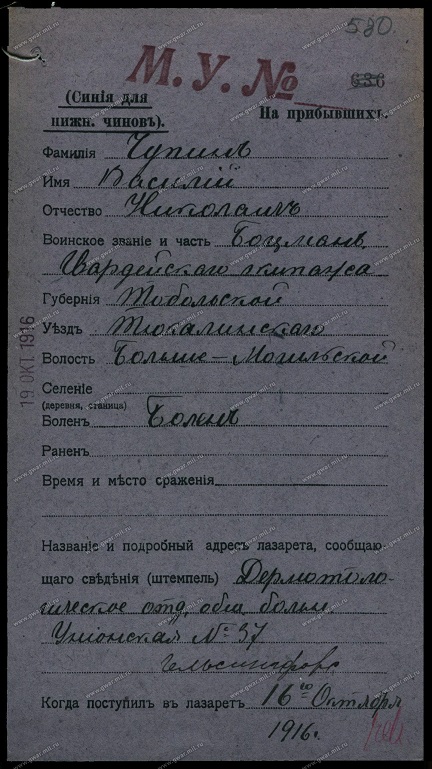 580.
М. У. №
636
(Синія для
нижн. чиновъ).
На прибывшихъ.
Фамилія Чупинъ
Имя Василій
Отчество Николаичъ
Воинское званіе и часть Боцманъ
Гвардейскаго экипажа
Губернія Тобольской
Уѣздъ Тюкалинскаго
Волость Больше-Могильской
Селеніе
(деревня, станица)
Боленъ Боленъ
Раненъ
Время и мѣсто сраженія
Названіе и подробный адресъ лазарета, сообщаю-
щаго свѣдѣнія (штемпель) Дерматоло-
гическое отд. общ. больн.
Уніонская № 37
Гельсингфорсъ
Когда поступилъ въ лазаретъ 16го Октября
1916г.
19 ОКТ. 1916
www.gwar.mil.ru